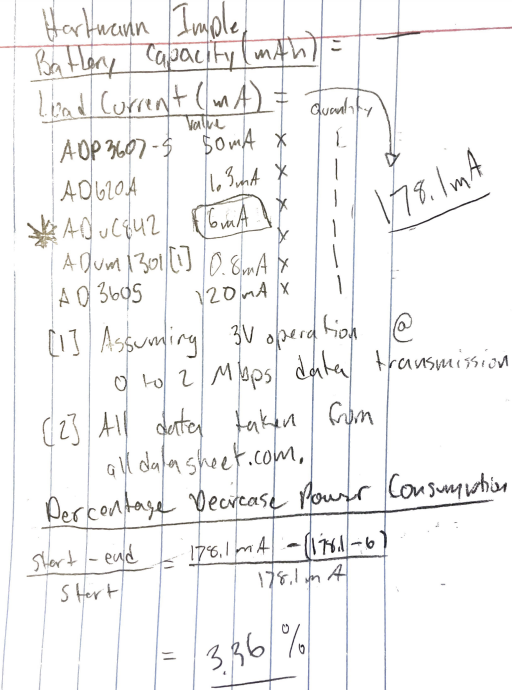 Hartmann Imple
Battery Capacity (mAh) = —
Load Current (mA) =
Value Quantity
ADP3607-5 50mA x 1
AD620A 1.3mA x 1
* ADuC842 6mA x 1
ADum1301 [1] 0.8mA x 1
AD3605 120mA x 1
178.1mA
[1] Assuming 3V operation @
0 to 2 Mbps data transmission
[2] All data taken from
alldatasheet.com.
Percentage Decrease Power Consumption
start - end = 178.1mA - (178.1-6)
start 178.1mA
= 3.36 %